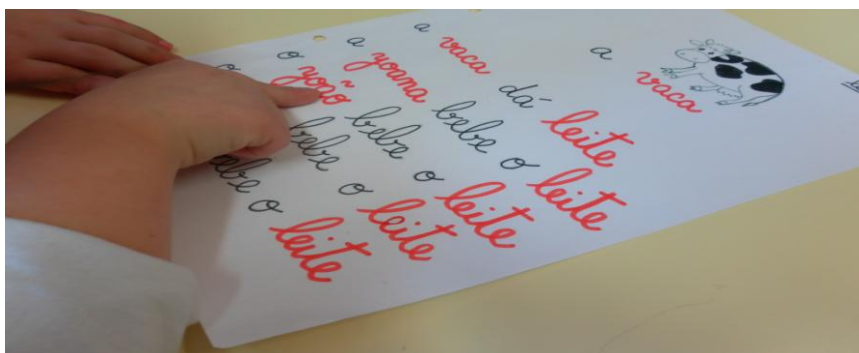 a vaca
a vaca dá leite
a Joana bebe o leite
o João bebe o leite
o bebe o leite
bebe o leite